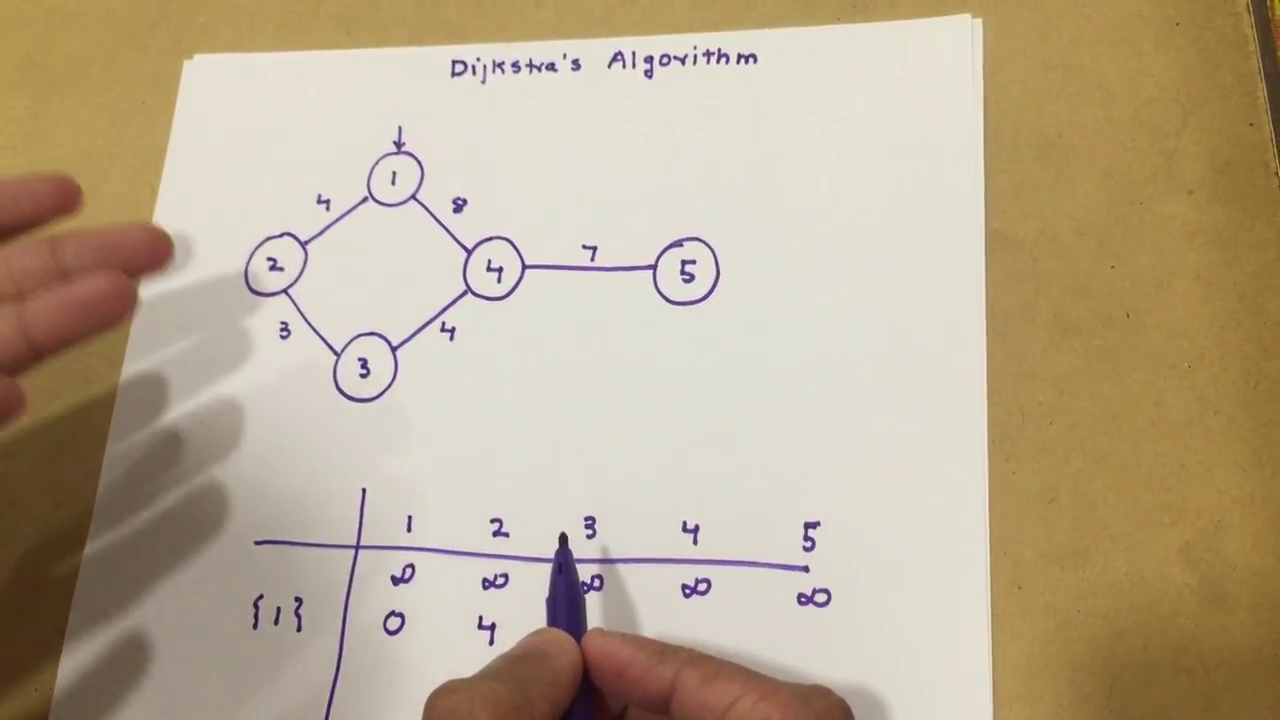 Dijkstra's Algorithm
1
4 8
2 4 7 5
3 4
3
1 2 3 4 5
∞ ∞ ∞ ∞ ∞
{1} 0 4